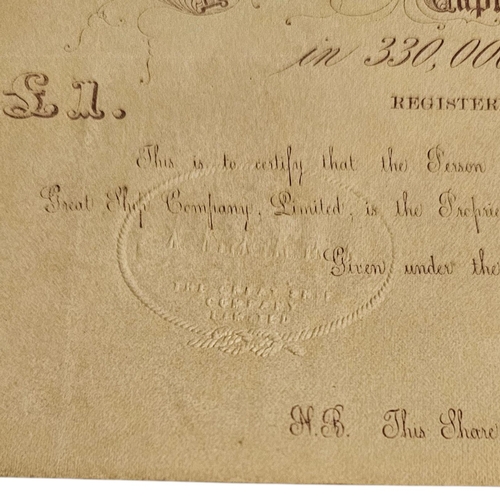 in 330,00
£1.
REGISTER
This is to certify that the Person
Great Ship Company, Limited, is the Proprie
Given under the
THE GREAT SHIP
COMPANY
LIMITED
N.B. This Share